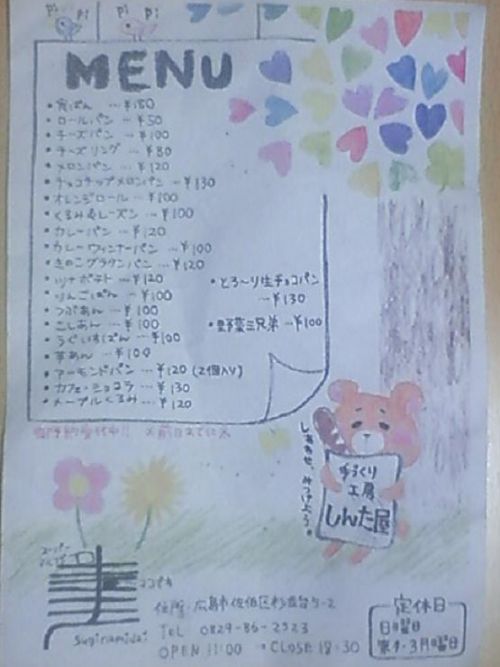 Pi Pi Pi Pi
MENU
・食ぱん …¥180
・ロールパン …¥50
・チーズパン …¥100
・チーズリング …¥80
・メロンパン …¥120
・チョコチップメロンパン …¥130
・オレンジロール …¥100
・くるみ&レーズン …¥100
・カレーパン …¥120
・カレーウィンナーパン …¥100
・きのこグラタンパン …¥120
・ツナポテト …¥120
・りんごぱん …¥100
・つぶあん …¥100
・こしあん …¥100
・うぐいすぱん …¥100
・芋あん …¥100
・アーモンドパン …¥120(2個入り)
・カフェ・ショコラ …¥130
・メープルくるみ …¥120
・とろ〜り生チョコパン
…¥130
・野菜三兄弟 …¥100
しあわせ、みつけよう。
手づくり
工房
しんた屋
スーパー
ココ
suginamidai
住所・広島市佐伯区杉並台5-2
TEL 0829-86-2523
OPEN 11:00 ・CLOSE 18:30
定休日
日曜日
第1・3月曜日